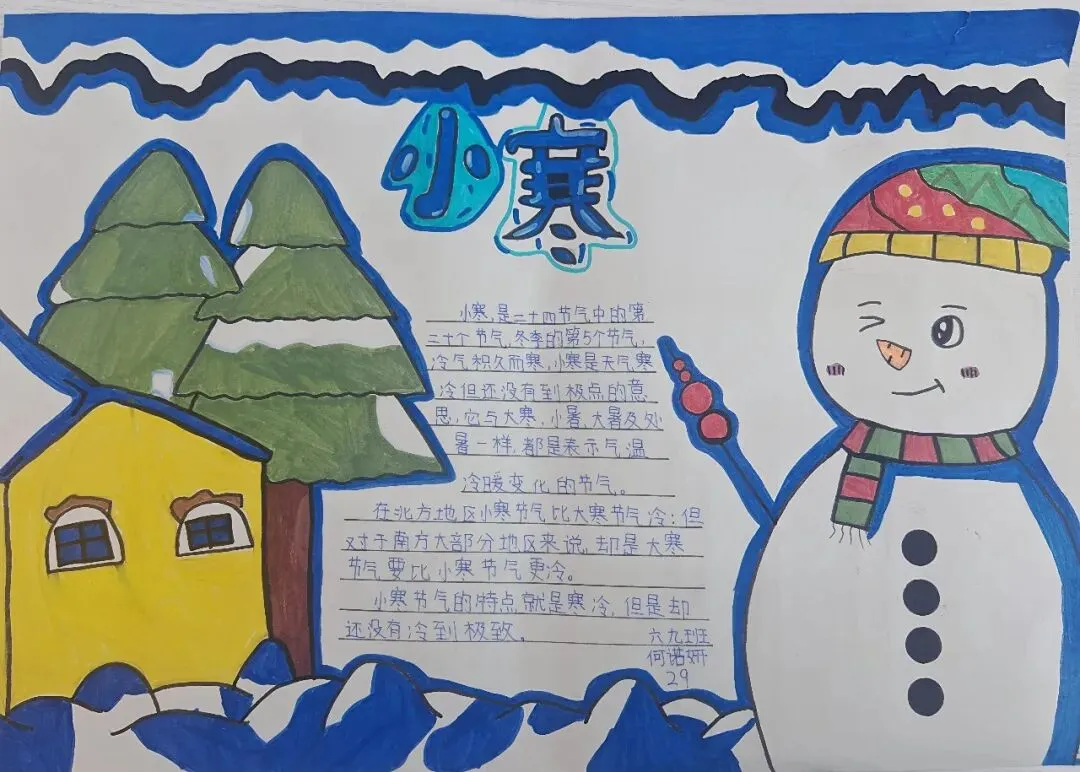 小寒
小寒,是二十四节气中的第
二十个节气,冬季的第5个节气,
冷气积久而寒,小寒是天气寒
冷但还没有到极点的意
思,它与大寒,小暑、大暑及处
暑一样,都是表示气温
冷暖变化的节气。
在北方地区小寒节气比大寒节气冷;但
对于南方大部分地区来说,却是大寒
节气要比小寒节气更冷。
小寒节气的特点就是寒冷,但是却
还没有冷到极致。
六九班
何诺妍
29